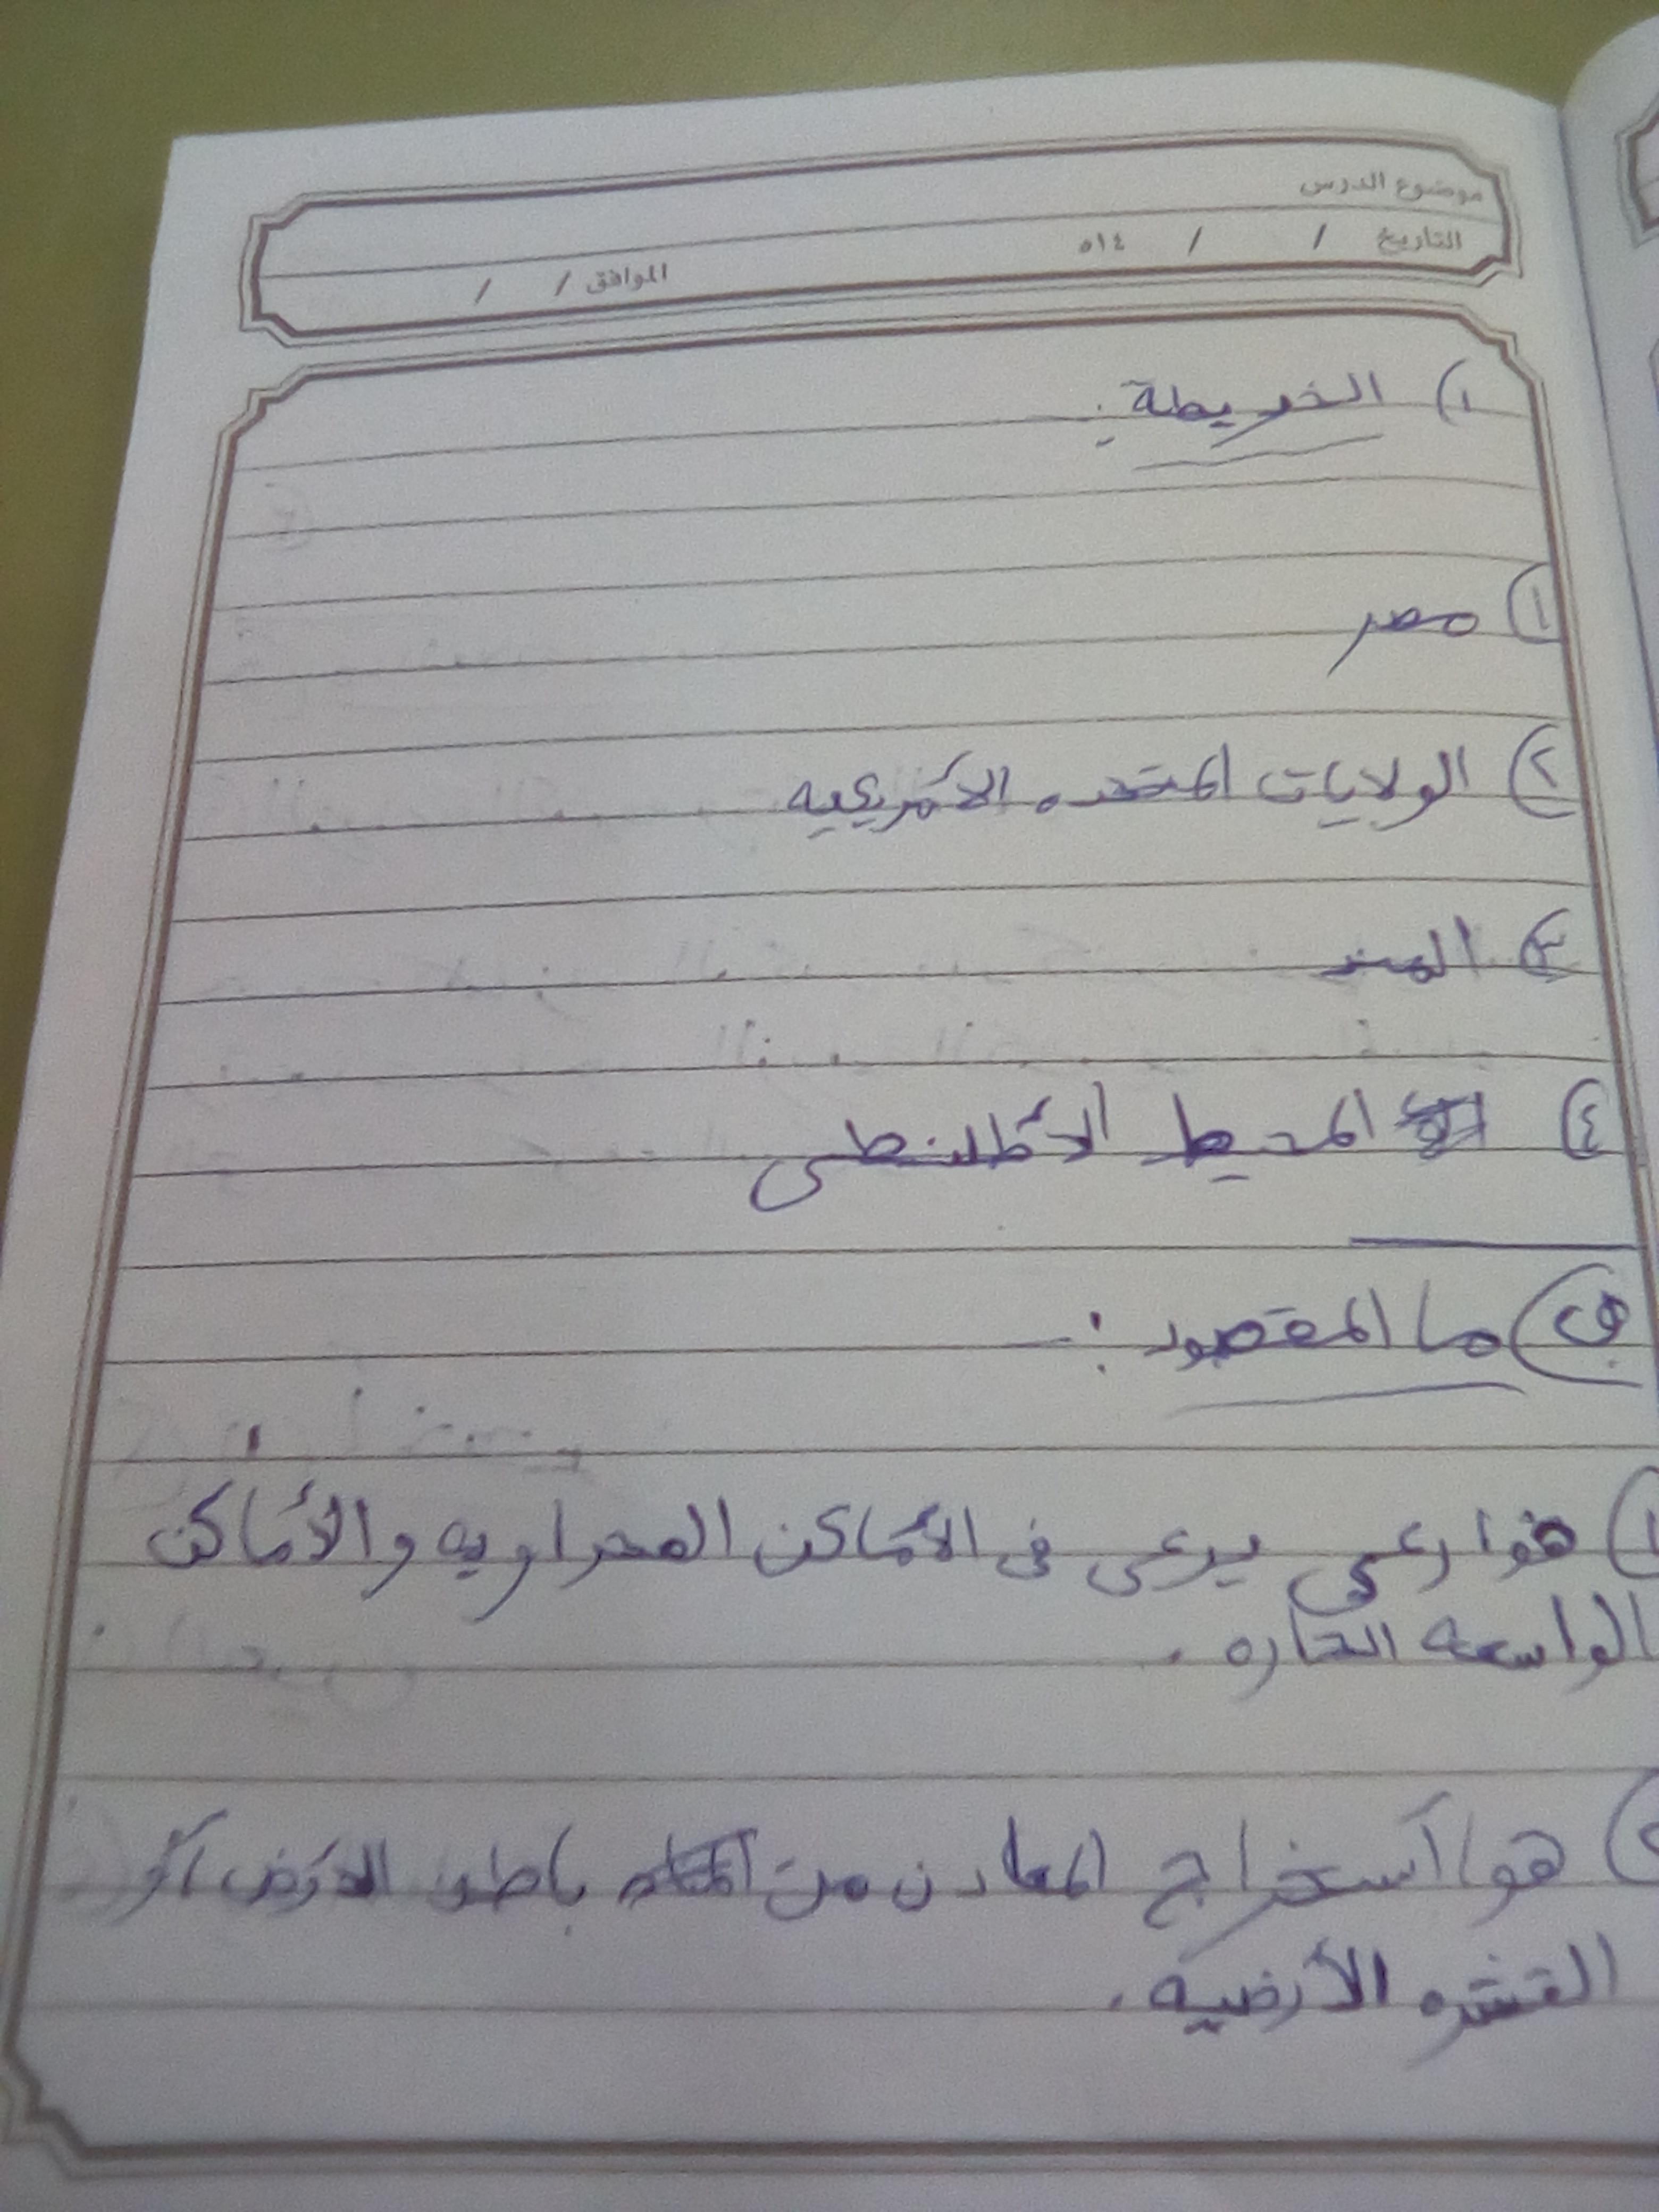 موضوع الدرس
التاريخ / / ١٤هـ الموافق / /
١) الخريطة:
١) مصر
٢) الولايات المتحده الأمريكيه
٣) الهند
٤) المحيط الأطلنطى
ب) ما المقصود:
١) هوا رعى يرعى فى الأماكن الصحراويه والأماكن
الواسعه الحاره.
٢) هوا أستخراج المعادن من باطن الأرض أو
القشره الأرضيه.